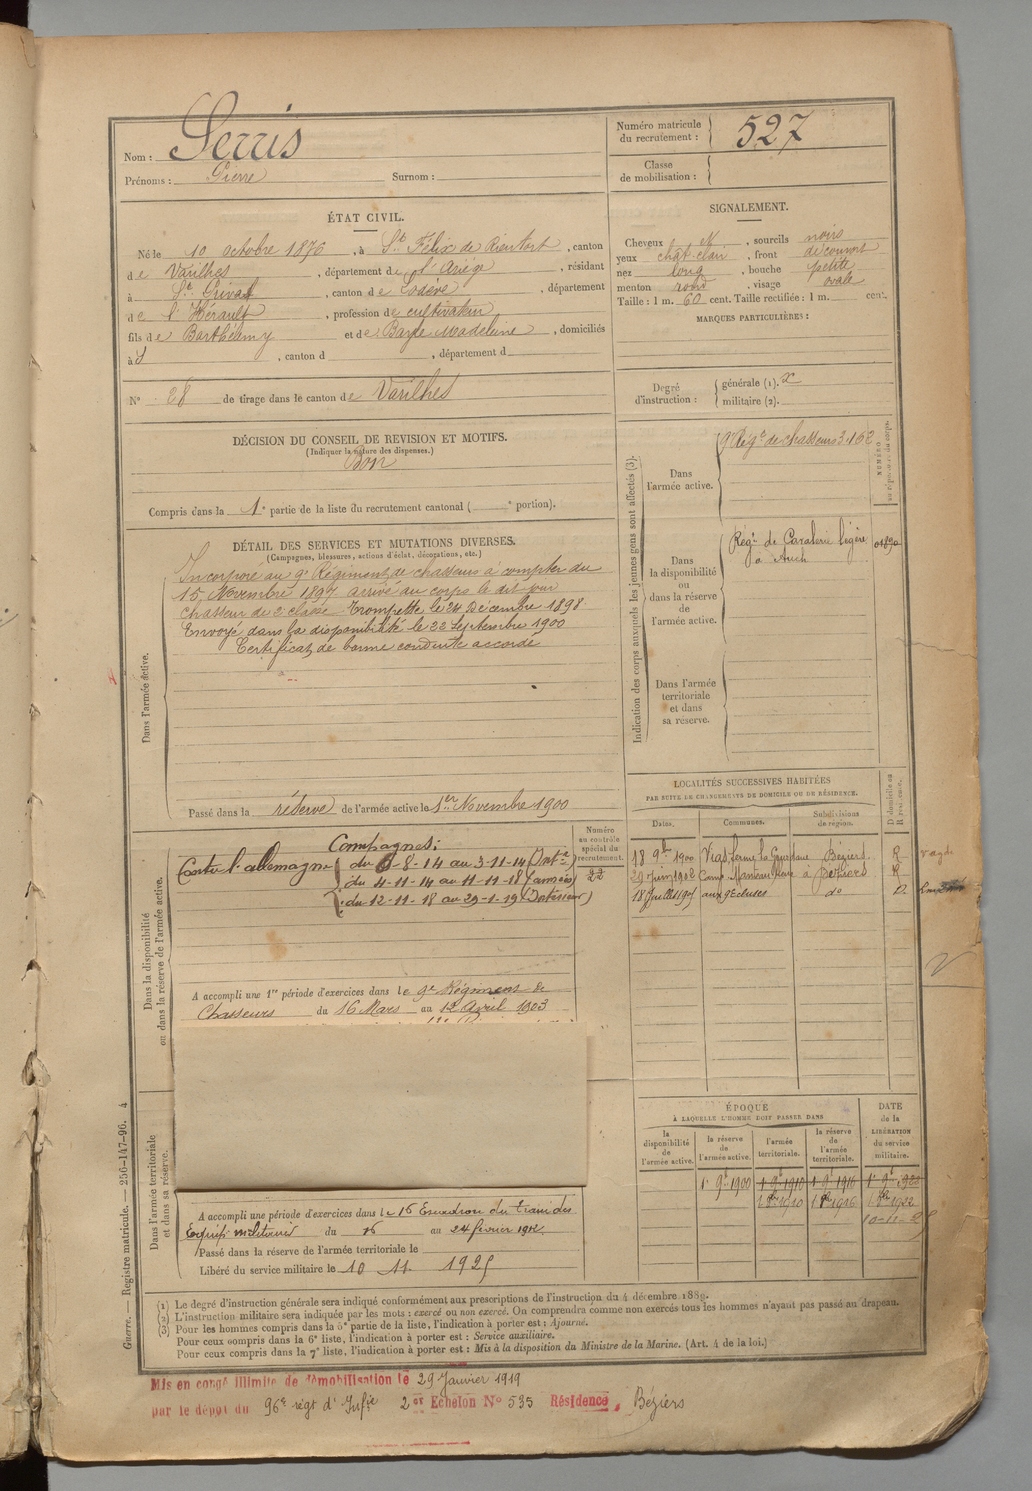 Nom : Serris
Prénoms : Pierre Surnom :
Numéro matricule du recrutement : 527
Classe de mobilisation :
ÉTAT CIVIL.
Né le 10 octobre 1876, à St Félix de Rieutort, canton
de Varilhes, département de l'Ariège, résidant
à St Privat, canton de Lodève, département
de l'Hérault, profession de cultivateur
fils de Barthélemy et de Madeleine, domiciliés
à d, canton d , département d
N° 28 de tirage dans le canton de Varilhes
SIGNALEMENT.
Cheveux N, sourcils noirs
yeux chat-clair, front découvert
nez long, bouche petite
menton rond, visage ovale
Taille : 1 m. 60 cent. Taille rectifiée : 1 m. cent.
MARQUES PARTICULIÈRES :
Degré d'instruction : générale (1). militaire (2).
DÉCISION DU CONSEIL DE REVISION ET MOTIFS.
(Indiquer la nature des dispenses.)
Bon
Compris dans la 1e partie de la liste du recrutement cantonal ( e portion).
DÉTAIL DES SERVICES ET MUTATIONS DIVERSES.
(Campagnes, blessures, actions d'éclat, décorations, etc.)
Dans l'armée active.
Incorporé au 9e Régiment de chasseurs à compter du
15 Novembre 1897 arrivé au corps le dit jour
chasseur de 2e classe Trompette le 24 Décembre 1898
Envoyé dans la disponibilité le 22 Septembre 1900
Certificat de bonne conduite accordé
Passé dans la réserve de l'armée active le 1er Novembre 1900
Indication des corps auxquels les jeunes gens sont affectés (3).
Dans l'armée active.
9e Rég't de chasseurs 3.162
Dans la disponibilité ou dans la réserve de l'armée active.
Rég't de Cavalerie légère
à Auch
Dans l'armée territoriale et dans sa réserve.
Dans la disponibilité ou dans la réserve de l'armée active.
Numéro au contrôle spécial du recrutement.
Campagnes :
Contre l'allemagne du 6-8-14 au 3-11-14 (Intre)
du 4-11-14 au 11-11-18 (armées)
du 12-11-18 au 29-1-19 (Intérieur)
A accompli une 1re période d'exercices dans le 9e Régiment de
Chasseurs du 16 Mars au 12 Avril 1903
LOCALITÉS SUCCESSIVES HABITÉES
PAR SUITE DE CHANGEMENTS DE DOMICILE OU DE RÉSIDENCE.
Dates. Communes. Subdivisions de région. D domicile ou R résidence.
18 9b 1900 Vias, ferme Béziers R
29 Juin 1902 Béziers R
18 Juillet 1905 aux 9 Ecluses do D
ÉPOQUE
À LAQUELLE L'HOMME DOIT PASSER DANS
DATE de la LIBÉRATION du service militaire.
la disponibilité de l'armée active. la réserve de l'armée active. l'armée territoriale. la réserve de l'armée territoriale.
1er 9b 1900 1er 9b 1910 1er 9b 1916 1er 9b 1922
1910 1916 1922
10-11-25
Dans l'armée territoriale et dans sa réserve.
A accompli une période d'exercices dans le 16 Escadron du train des
Equip. militaires du 16 au 24 février 1912.
Passé dans la réserve de l'armée territoriale le
Libéré du service militaire le 10 11. 1925
(1) Le degré d'instruction générale sera indiqué conformément aux prescriptions de l'instruction du 4 décembre 1889.
(2) L'instruction militaire sera indiquée par les mots : exercé ou non exercé. On comprendra comme non exercés tous les hommes n'ayant pas passé au drapeau.
(3) Pour les hommes compris dans la 5e partie de la liste, l'indication à porter est : Ajourné.
Pour ceux compris dans la 6e liste, l'indication à porter est : Service auxiliaire.
Pour ceux compris dans la 7e liste, l'indication à porter est : Mis à la disposition du Ministre de la Marine. (Art. 4 de la loi.)
Guerre. — Registre matricule. — 256-147-96. 4
Mis en congé illimité de démobilisation le 29 Janvier 1919
par le dépôt du 96e régt d'Infie 2er Echelon N° 535 Résidence, Béziers